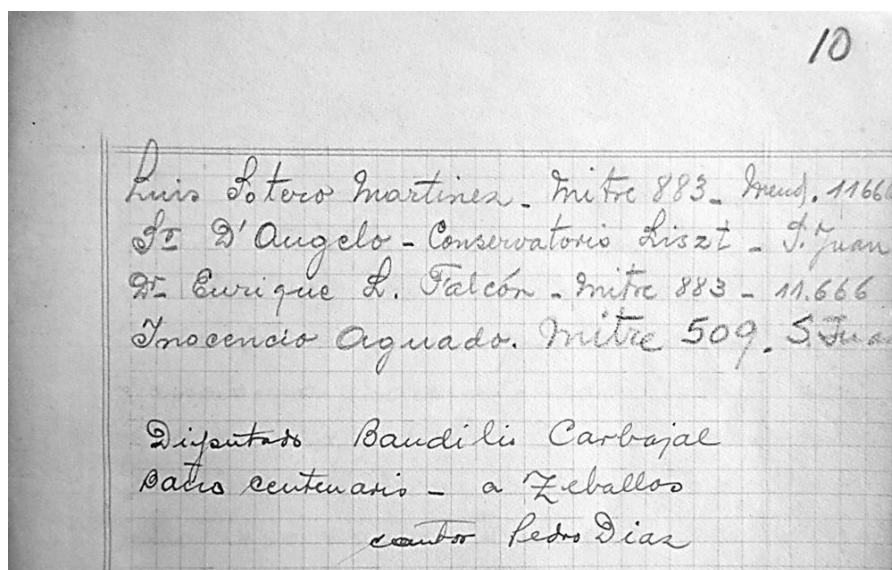 10
Luis Sotero Martinez - Mitre 883 - Mend. 11666
Sr D'Angelo - Conservatorio Liszt - S. Juan
Dr Enrique L. Falcón - Mitre 883 - 11.666
Inocencio Aguado. Mitre 509. S. Jua
Diputado Baudilio Carbajal
centenario - a Zeballos
cantor Pedro Diaz